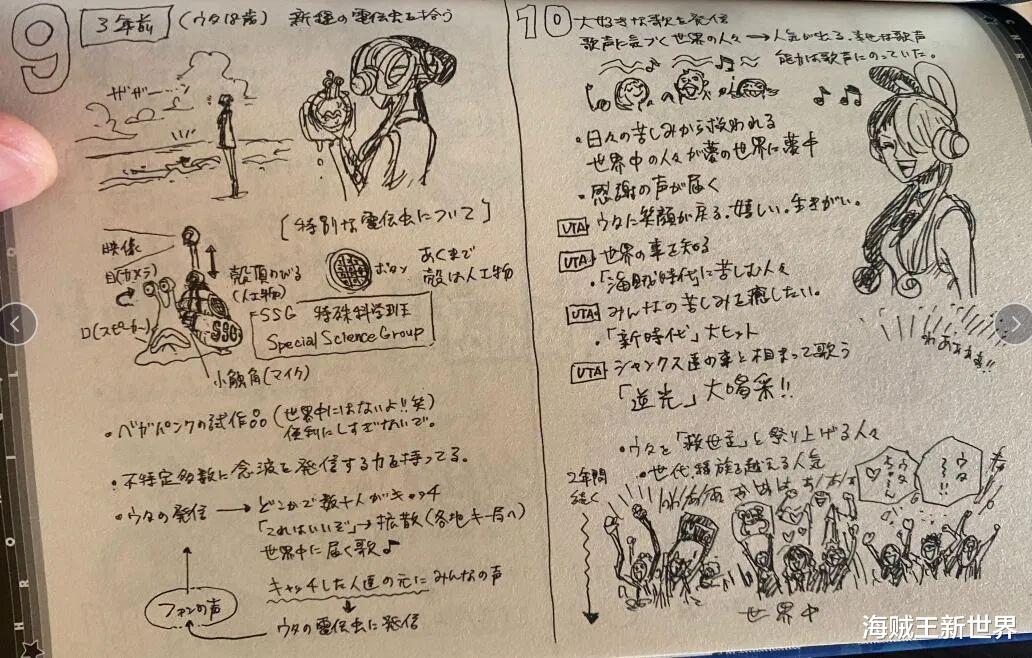 9 3年前 (ウタ18歳) 新種の電伝虫を拾う
ザザー…ン
[特別な電伝虫について]
映像
目(カメラ)
口(スピーカー)
殻頂のびる
(人工物)
ボタン
あくまで
殻は人工物
SSG
SSG 特殊科学班
Special Science Group
小触角(マイク)
・ベガパンクの試作品 (世界中にはないよ!!笑)
便利にしすぎないで。
・不特定多数に念波を発信する力を持ってる。
・ウタの発信 → どこかで数十人がキャッチ
「これはいいぞ」→拡散(各地キー局へ)
世界中に届く歌♪
キャッチした人達の元にみんなの声
ファンの声
ウタの電伝虫に発信
10 大好きな歌を発信
歌声に気づく世界の人々 → 人気が出る。幸せな歌声
能力は歌声にのっていた。
・日々の苦しみから救われる
世界中の人々が夢の世界に夢中
・感謝の声が届く
UTA ウタに笑顔が戻る。嬉しい。生きがい。
UTA 世界の事を知る
「海賊時代に苦しむ人々
UTA みんなの苦しみを癒したい。
・「新時代」大ヒット
わあああ!!
UTA シャンクス達の事と相まって歌う
「逆光」大喝采!!
・ウタを「救世主」と祭り上げる人々
・世代種族を越える人気
2年間
続く
ウタ
ちゃーん
ウタ
〜!!
世界中
海贼王新世界